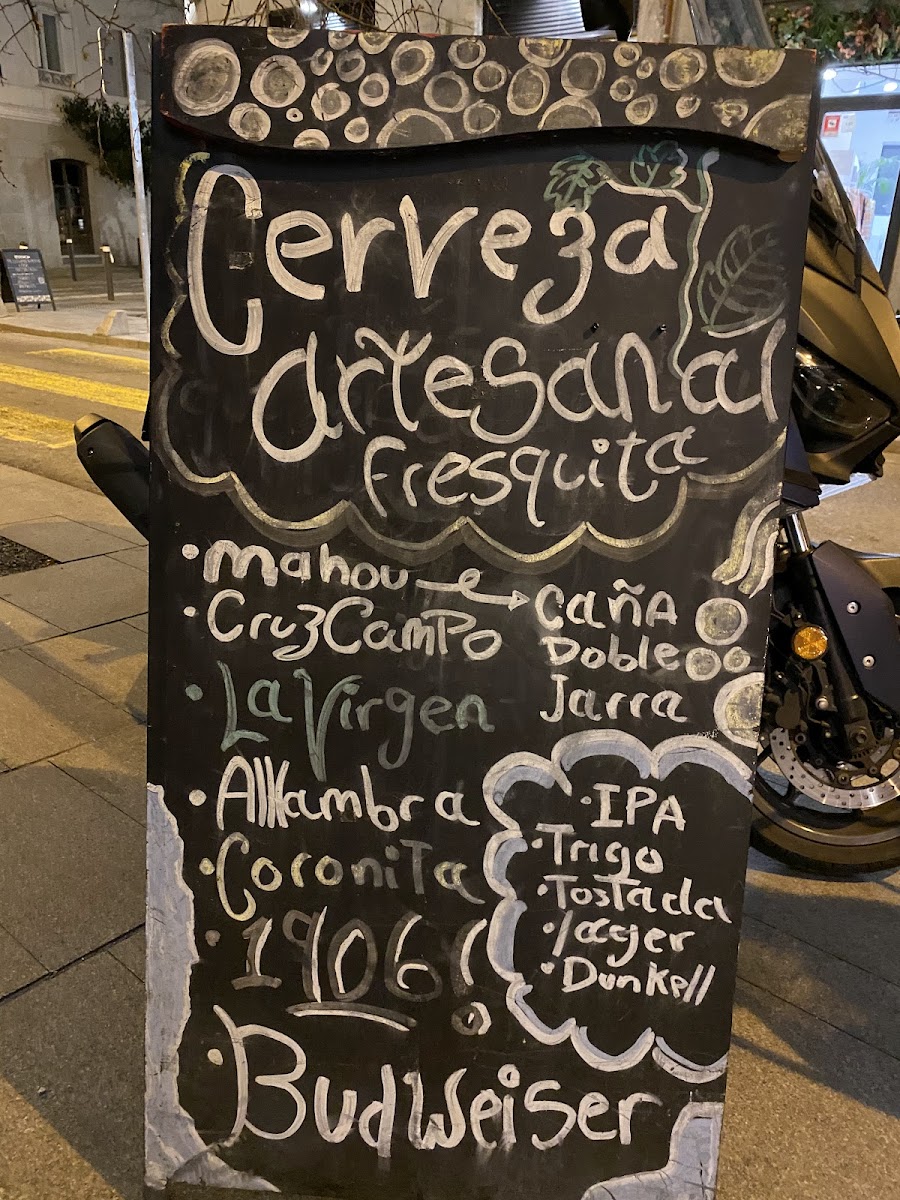 Cerveza
artesanal
fresquita
·mahou → cañA
·CruzCamPo Doble
Jarra
·La Virgen
·Alhambra
·CoroniTa
·1906
·BudWeiser
·IPA
·Trigo
·Tostada
·lager
·Dunkell